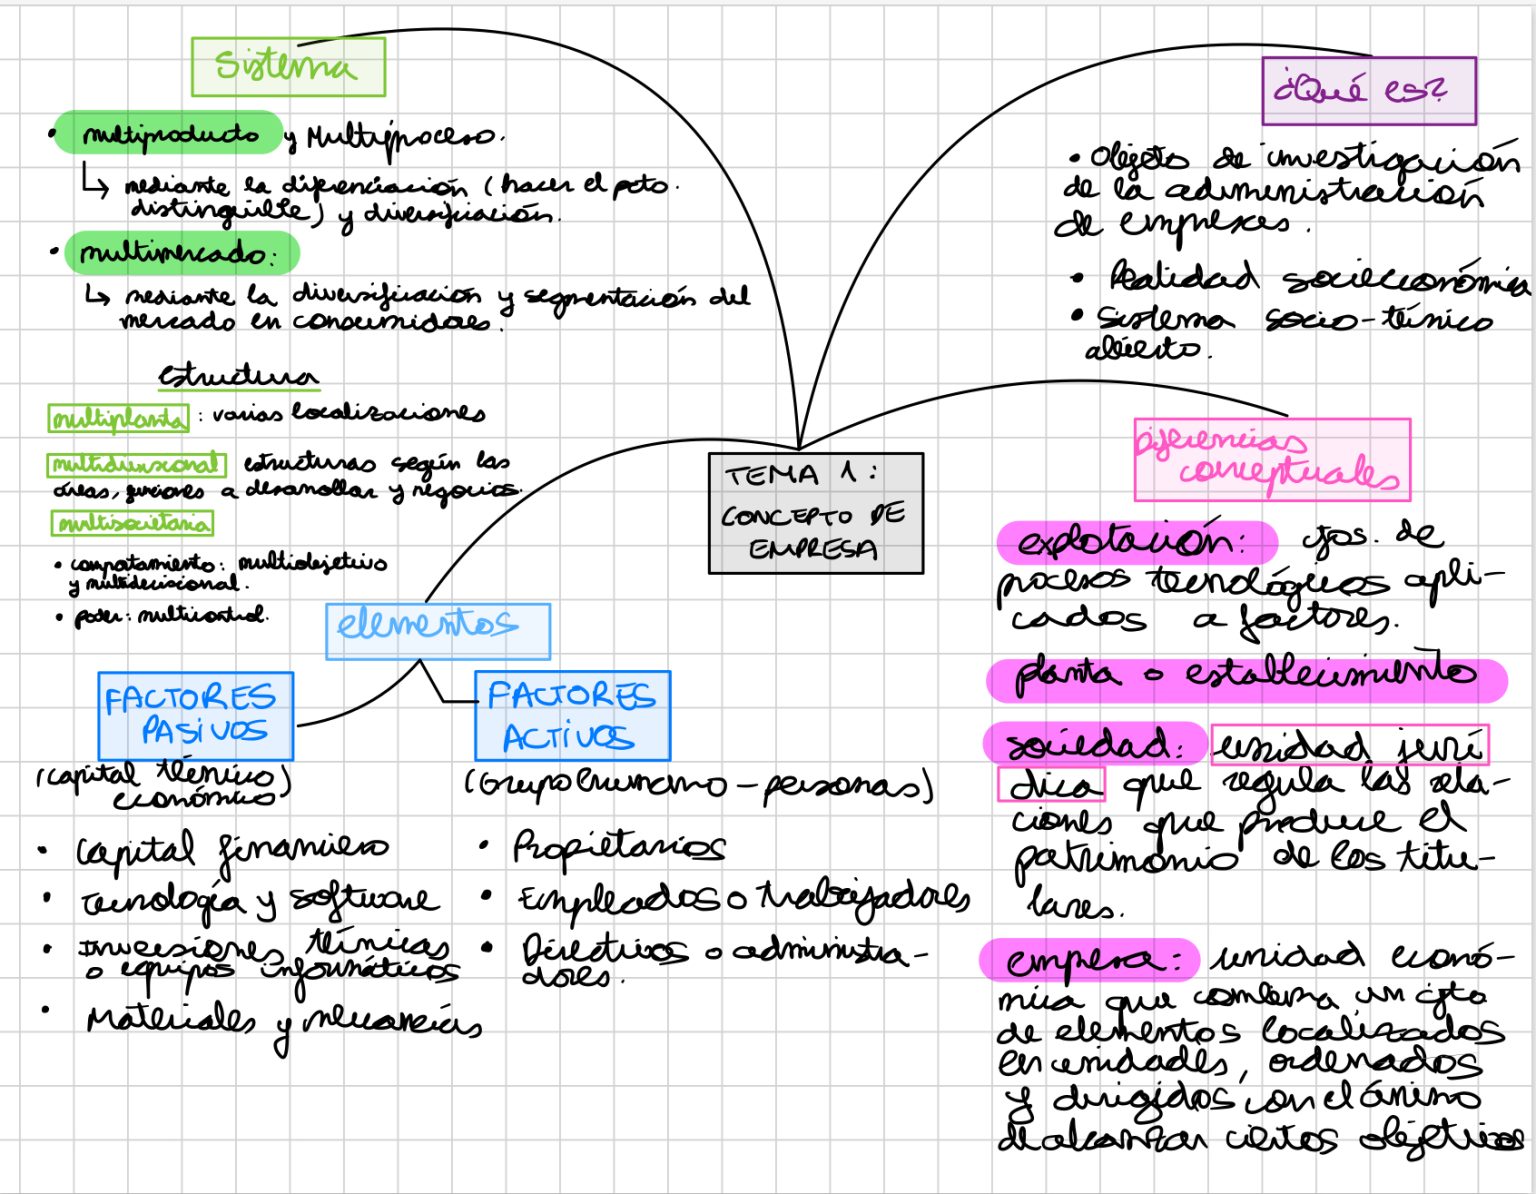 TEMA 1:
CONCEPTO DE
EMPRESA
Sistema
• multiproducto y Multiproceso.
↳ mediante la diferenciación (hacer el pcto.
distinguible) y diversificación.
• multimercado:
↳ mediante la diversificación y segmentación del
mercado en consumidores.
estructura
multiplanta : varias localizaciones
multidivisional estructuras según las
áreas, funciones a desarrollar y negocios.
multisocietaria
• comportamiento: multiobjetivo
y multidecisional.
• poder: multicontrol.
elementos
FACTORES
PASIVOS
(capital técnico
económico)
• Capital financiero
• Tecnología y software
• Inversiones técnicas
o equipos informáticos
• Materiales y mercancías
FACTORES
ACTIVOS
(Grupo humano - personas)
• Propietarios
• Empleados o trabajadores
• Directivos o administra-
dores.
¿Qué es?
• Objeto de investigación
de la administración
de empresas.
• Realidad socieconómica
• Sistema socio-técnico
abierto.
Diferencias
conceptuales
explotación: cjos. de
procesos tecnológicos apli-
cados a factores.
planta o establecimiento
sociedad: unidad jurí
dica que regula las rela-
ciones que produce el
patrimonio de los titu-
lares.
empresa: unidad econó-
mica que combina un cjto
de elementos localizados
en unidades, ordenados
y dirigidos con el ánimo
de alcanzar ciertos objetivos